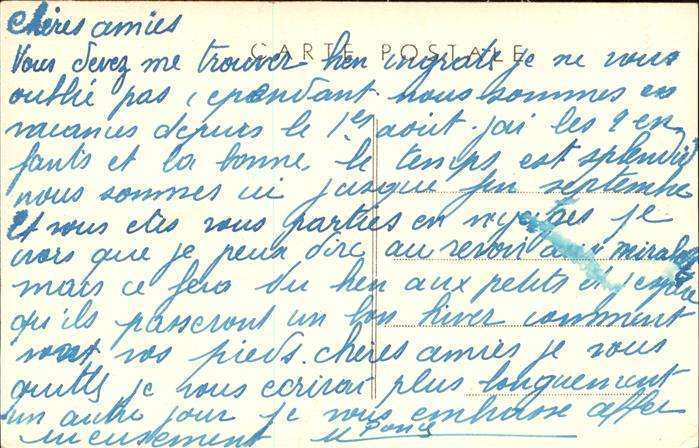 Chères amies
CARTE POSTALE
Vous devez me trouver bien ingrate je ne vous
oublie pas cependant nous sommes en
vacances depuis le 1er aout. jai les 2 en
fants et la bonne. le temps est splendid
nous sommes ici jusque fin septembre
Et vous etes vous parties en voyages je
crois que je peux dire au revoir
mais ce fera du bien aux petits et j'espère
qu'ils passeront un bon hiver comment
vont vos pieds. chères amies je vous
quitte je vous ecrirai plus longuement
un autre jour je vous embrasse affec
tueusement